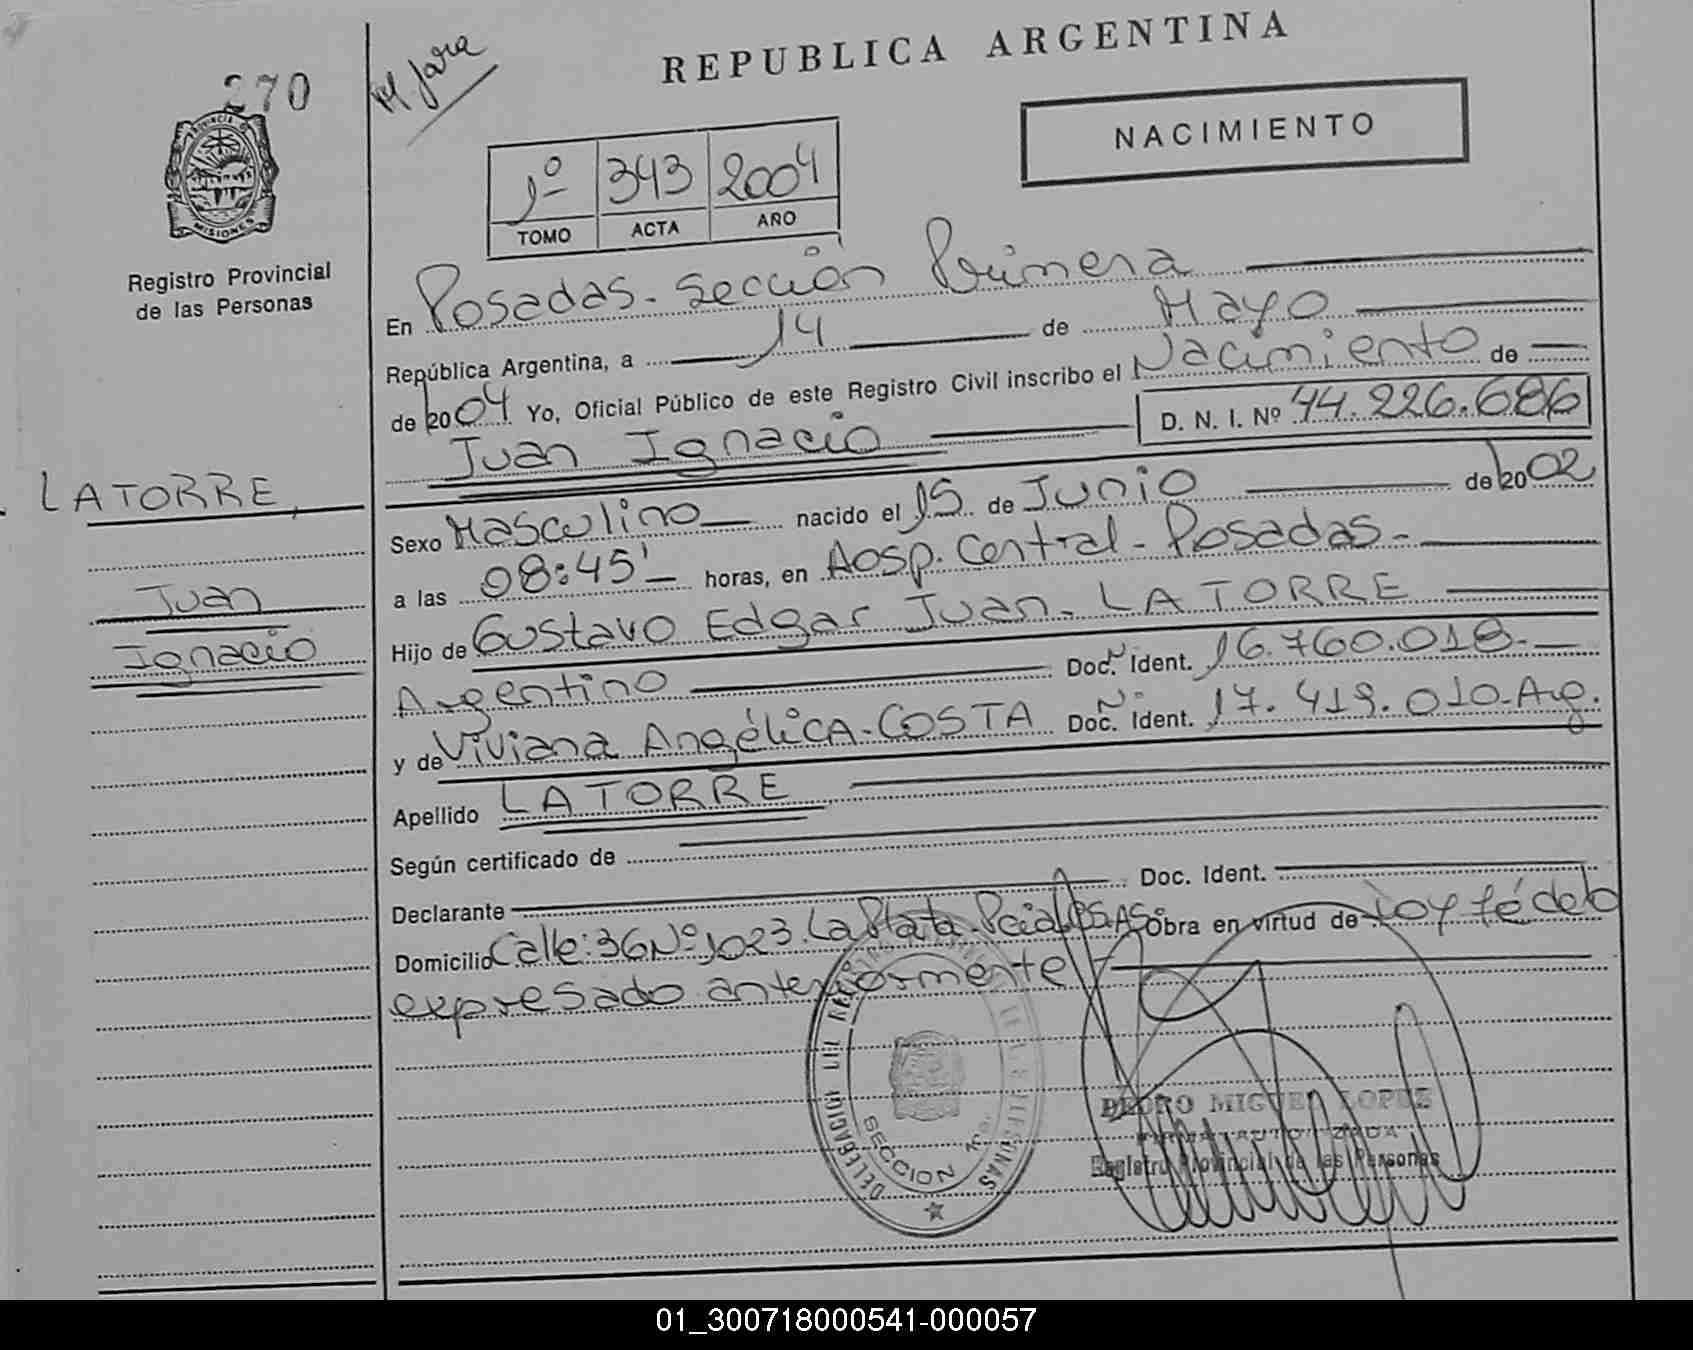 REPUBLICA ARGENTINA
270
M Jara
NACIMIENTO
PROVINCIA D
MISIONES
1º 343 2004
TOMO ACTA AÑO
Registro Provincial
de las Personas
En Posadas - Sección Primera
República Argentina, a 14 de Mayo
de 2004 Yo, Oficial Público de este Registro Civil inscribo el Nacimiento de
Juan Ignacio D. N. I. Nº 44.226.686
LATORRE,
Juan
Ignacio
Sexo Masculino nacido el 15 de Junio de 2002
a las 08:45' horas, en Hosp. Central - Posadas -
Hijo de Gustavo Edgar Juan - LATORRE
Argentino Doc. N Ident. 16.760.018 -
y de Viviana Angélica - COSTA Doc. N Ident. 17.419.010 - Arg.
Apellido LATORRE
Según certificado de
Declarante Doc. Ident.
Domicilio Calle: 36 Nº 1023. La Plata - Pcia Bs As. Obra en virtud de Doy fé de lo
expresado anteriormente
SECCION 1ra.
PEDRO MIGUEL LOPEZ
FIRMA AUTORIZADA
Registro Provincial de las Personas
01_300718000541-000057